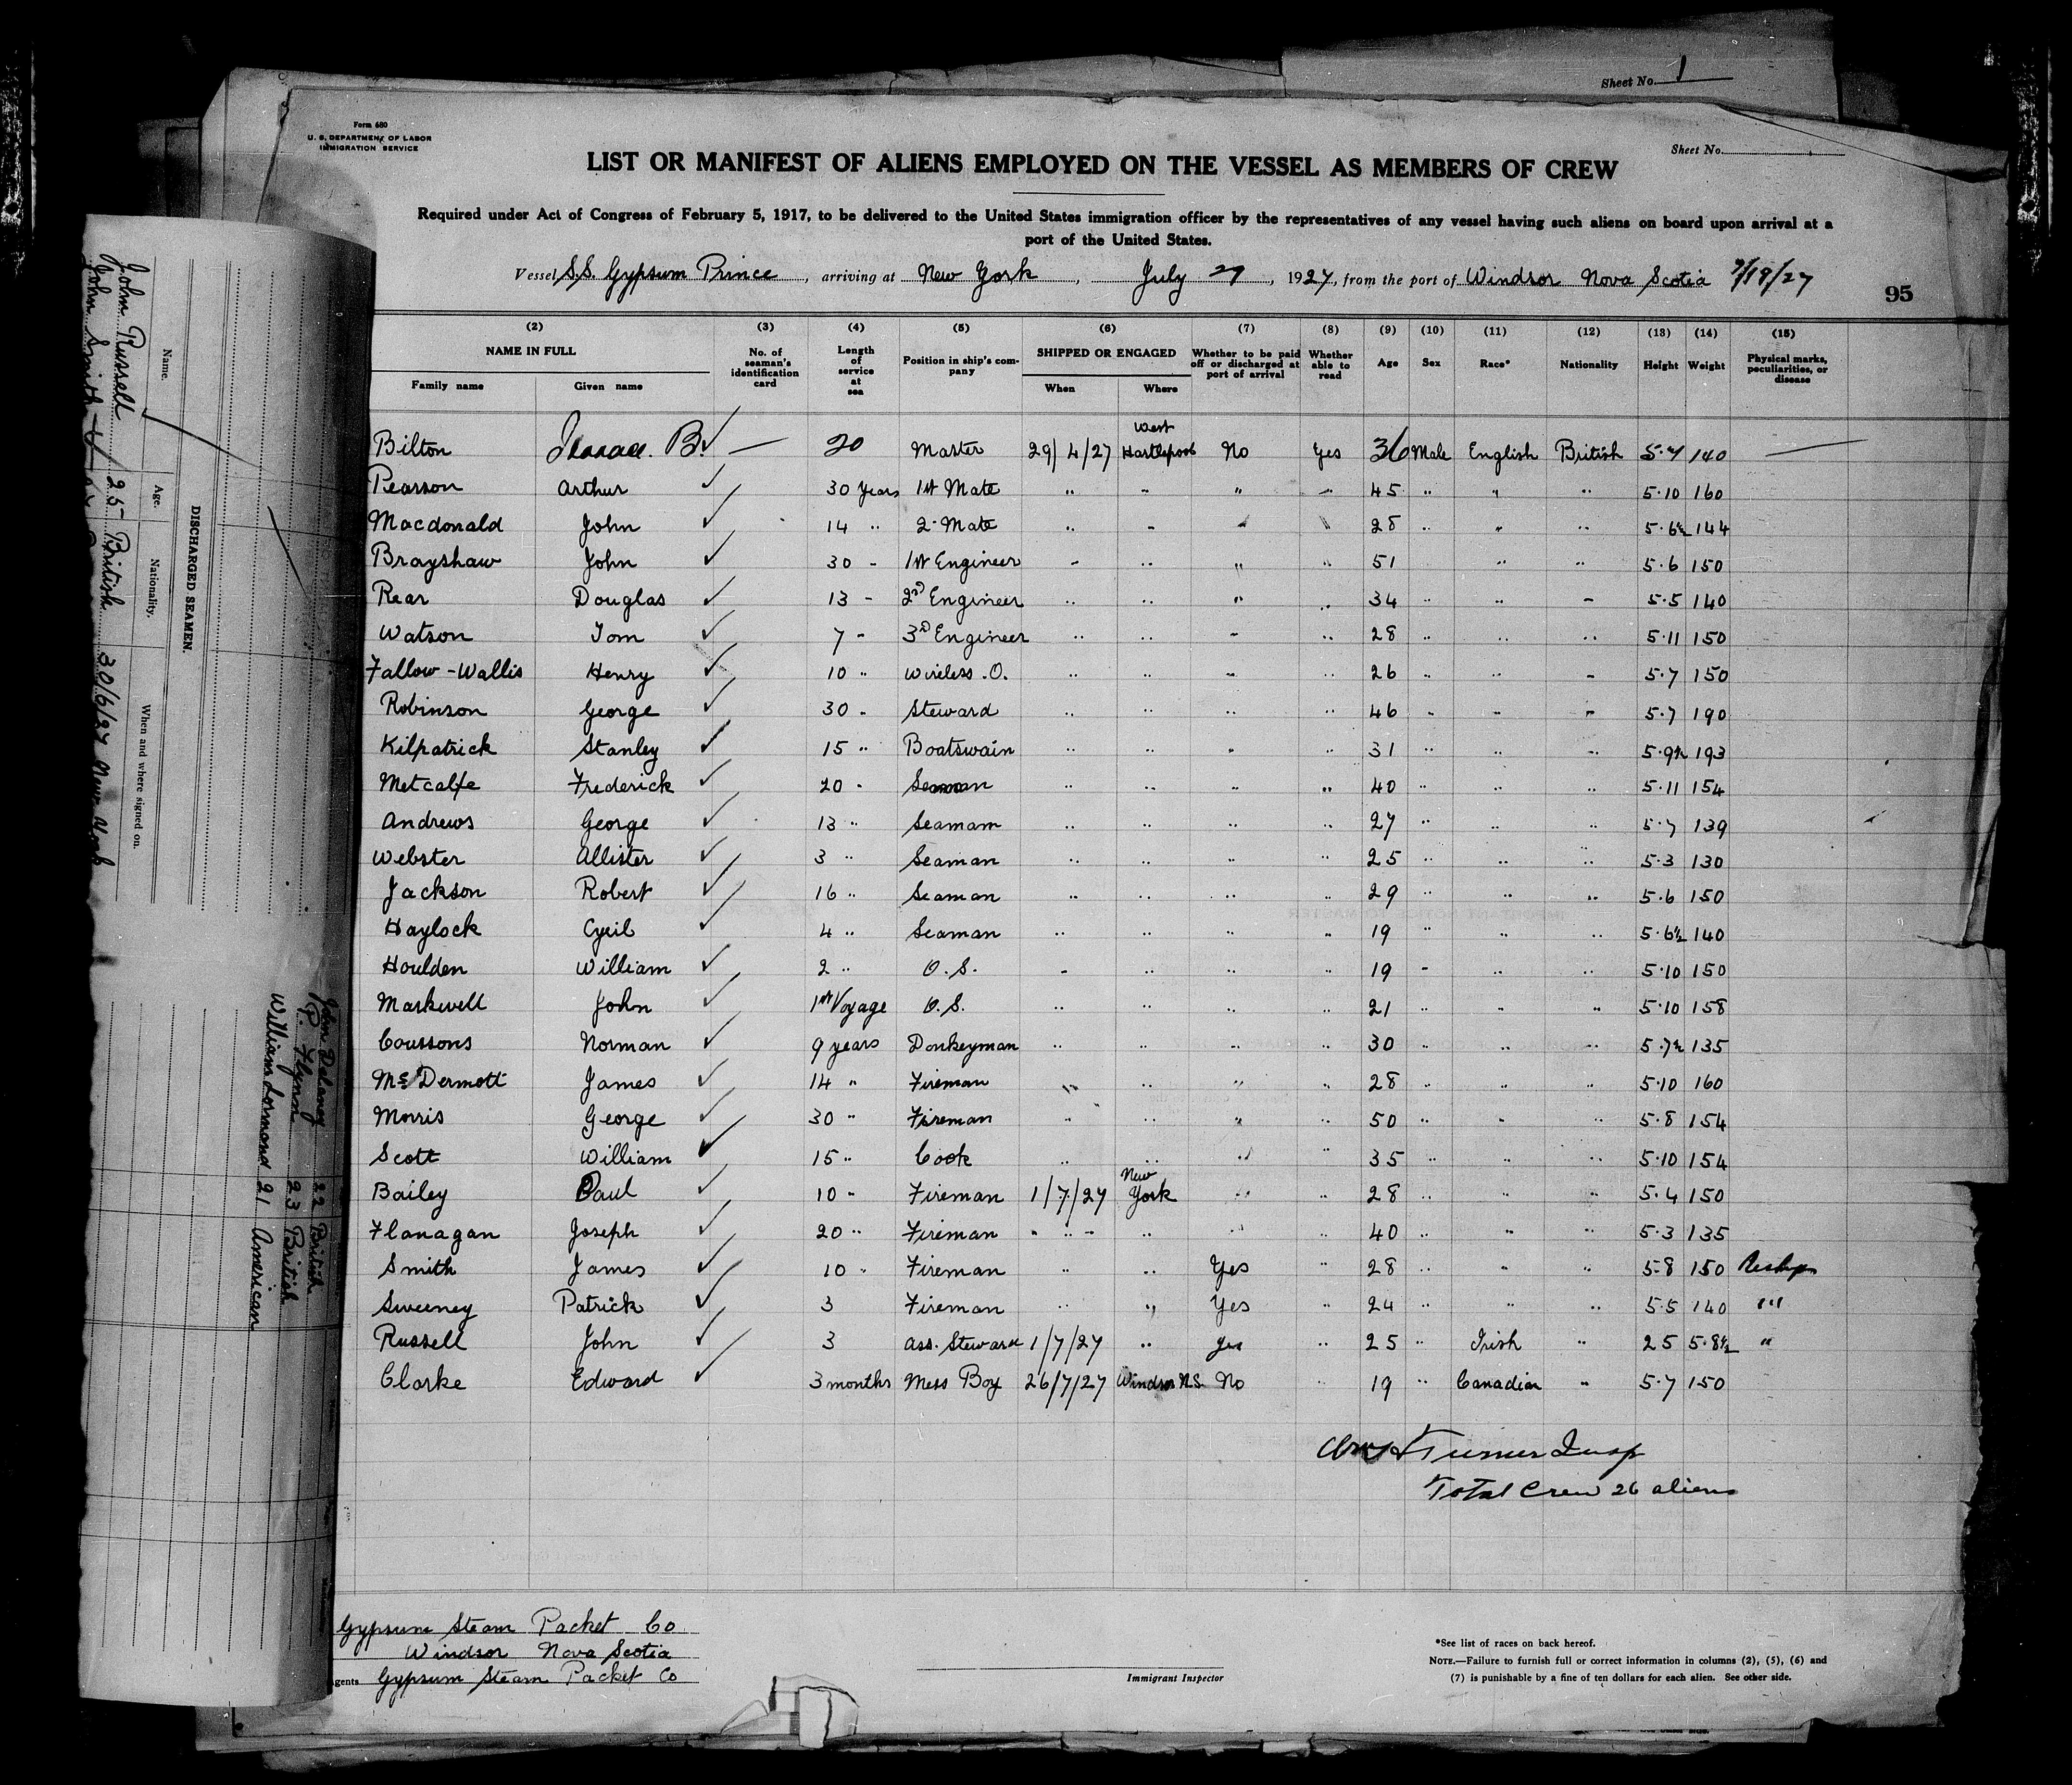 Sheet No. 1
Form 680
U. S. DEPARTMENT OF LABOR
IMMIGRATION SERVICE
Sheet No.
LIST OR MANIFEST OF ALIENS EMPLOYED ON THE VESSEL AS MEMBERS OF CREW
Required under Act of Congress of February 5, 1917, to be delivered to the United States immigration officer by the representatives of any vessel having such aliens on board upon arrival at a
port of the United States.
Vessel S.S. Gypsum Prince, arriving at New York, July 29, 1927, from the port of Windsor Nova Scotia
95
(2) (3) (4) (5) (6) (7) (8) (9) (10) (11) (12) (13) (14) (15)
NAME IN FULL No. of seaman's identification card Length of service at sea Position in ship's company SHIPPED OR ENGAGED Whether to be paid off or discharged at port of arrival Whether able to read Age Sex Race* Nationality Height Weight Physical marks, peculiarities, or disease
Family name Given name When Where
Bilton B. — 20 Master 29/4/27 West Hartlepool No Yes 36 Male English British 5·7 140 —
Pearson Arthur 30 years 1st Mate " " " " 45 " " " 5·10 160
Macdonald John 14 " 2 Mate " " " " 28 " " " 5·6½ 144
Brayshaw John 30 " 1st Engineer " " " " 51 " " 5·6 150
Rear Douglas 13 " 2nd Engineer " " " " 34 " " " 5·5 140
Watson Tom 7 " 3rd Engineer " " " " 28 " " " 5·11 150
Fallow-Wallis Henry 10 " Wireless. O. " " " " 26 " " " 5·7 150
Robinson George 30 " Steward " " " " 46 " " " 5·7 190
Kilpatrick Stanley 15 " Boatswain " " " " 31 " " " 5·9½ 193
Metcalfe Frederick 20 " Seaman " " " " 40 " " " 5·11 154
Andrews George 13 " Seamam " " " " 27 " " " 5·7 139
Webster Allister 3 " Seaman " " " " 25 " " " 5·3 130
Jackson Robert 16 " Seaman " " " " 29 " " " 5·6 150
Haylock Cyril 4 " Seaman " " " " 19 " " " 5·6½ 140
Houlden William 2 " O. S. " " " " 19 " " " 5·10 150
Markwell John 1st Voyage O. S. " " " " 21 " " " 5·10 158
Coussons Norman 9 years Donkeyman " " " " 30 " " " 5·7½ 135
McDermott James 14 " Fireman " " " " 28 " " " 5·10 160
Morris George 30 " Fireman " " " " 50 " " " 5·8 154
Scott William 15 " Cook " " " " 35 " " " 5·10 154
Bailey Paul 10 " Fireman 1/7/27 New York " " 28 " " " 5·4 150
Flanagan Joseph 20 " Fireman " " " " 40 " " " 5·3 135
Smith James 10 " Fireman " " Yes " 28 " " " 5·8 150
Sweeney Patrick 3 Fireman " " Yes " 24 " " " 5·5 140 "
Russell John 3 Ass. Steward 1/7/27 " Yes " 25 " Irish " 25 5·8½ "
Clarke Edward 3 months Mess Boy 26/7/27 Windsor N.S. No " 19 " Canadian " 5·7 150
Turner Insp
Total Crew 26 aliens
Gypsum Steam Packet Co
Windsor Nova Scotia
gents Gypsum Steam Packet Co
Immigrant Inspector
*See list of races on back hereof.
NOTE.—Failure to furnish full or correct information in columns (2), (5), (6) and
(7) is punishable by a fine of ten dollars for each alien. See other side.
DISCHARGED SEAMEN.
Name. Age. Nationality. When and where signed on.
John Russell 25 British 30/6/27 New York
John Smith
John Delaney 22 British
P. Flynn 23 British
William Lormond 21 American